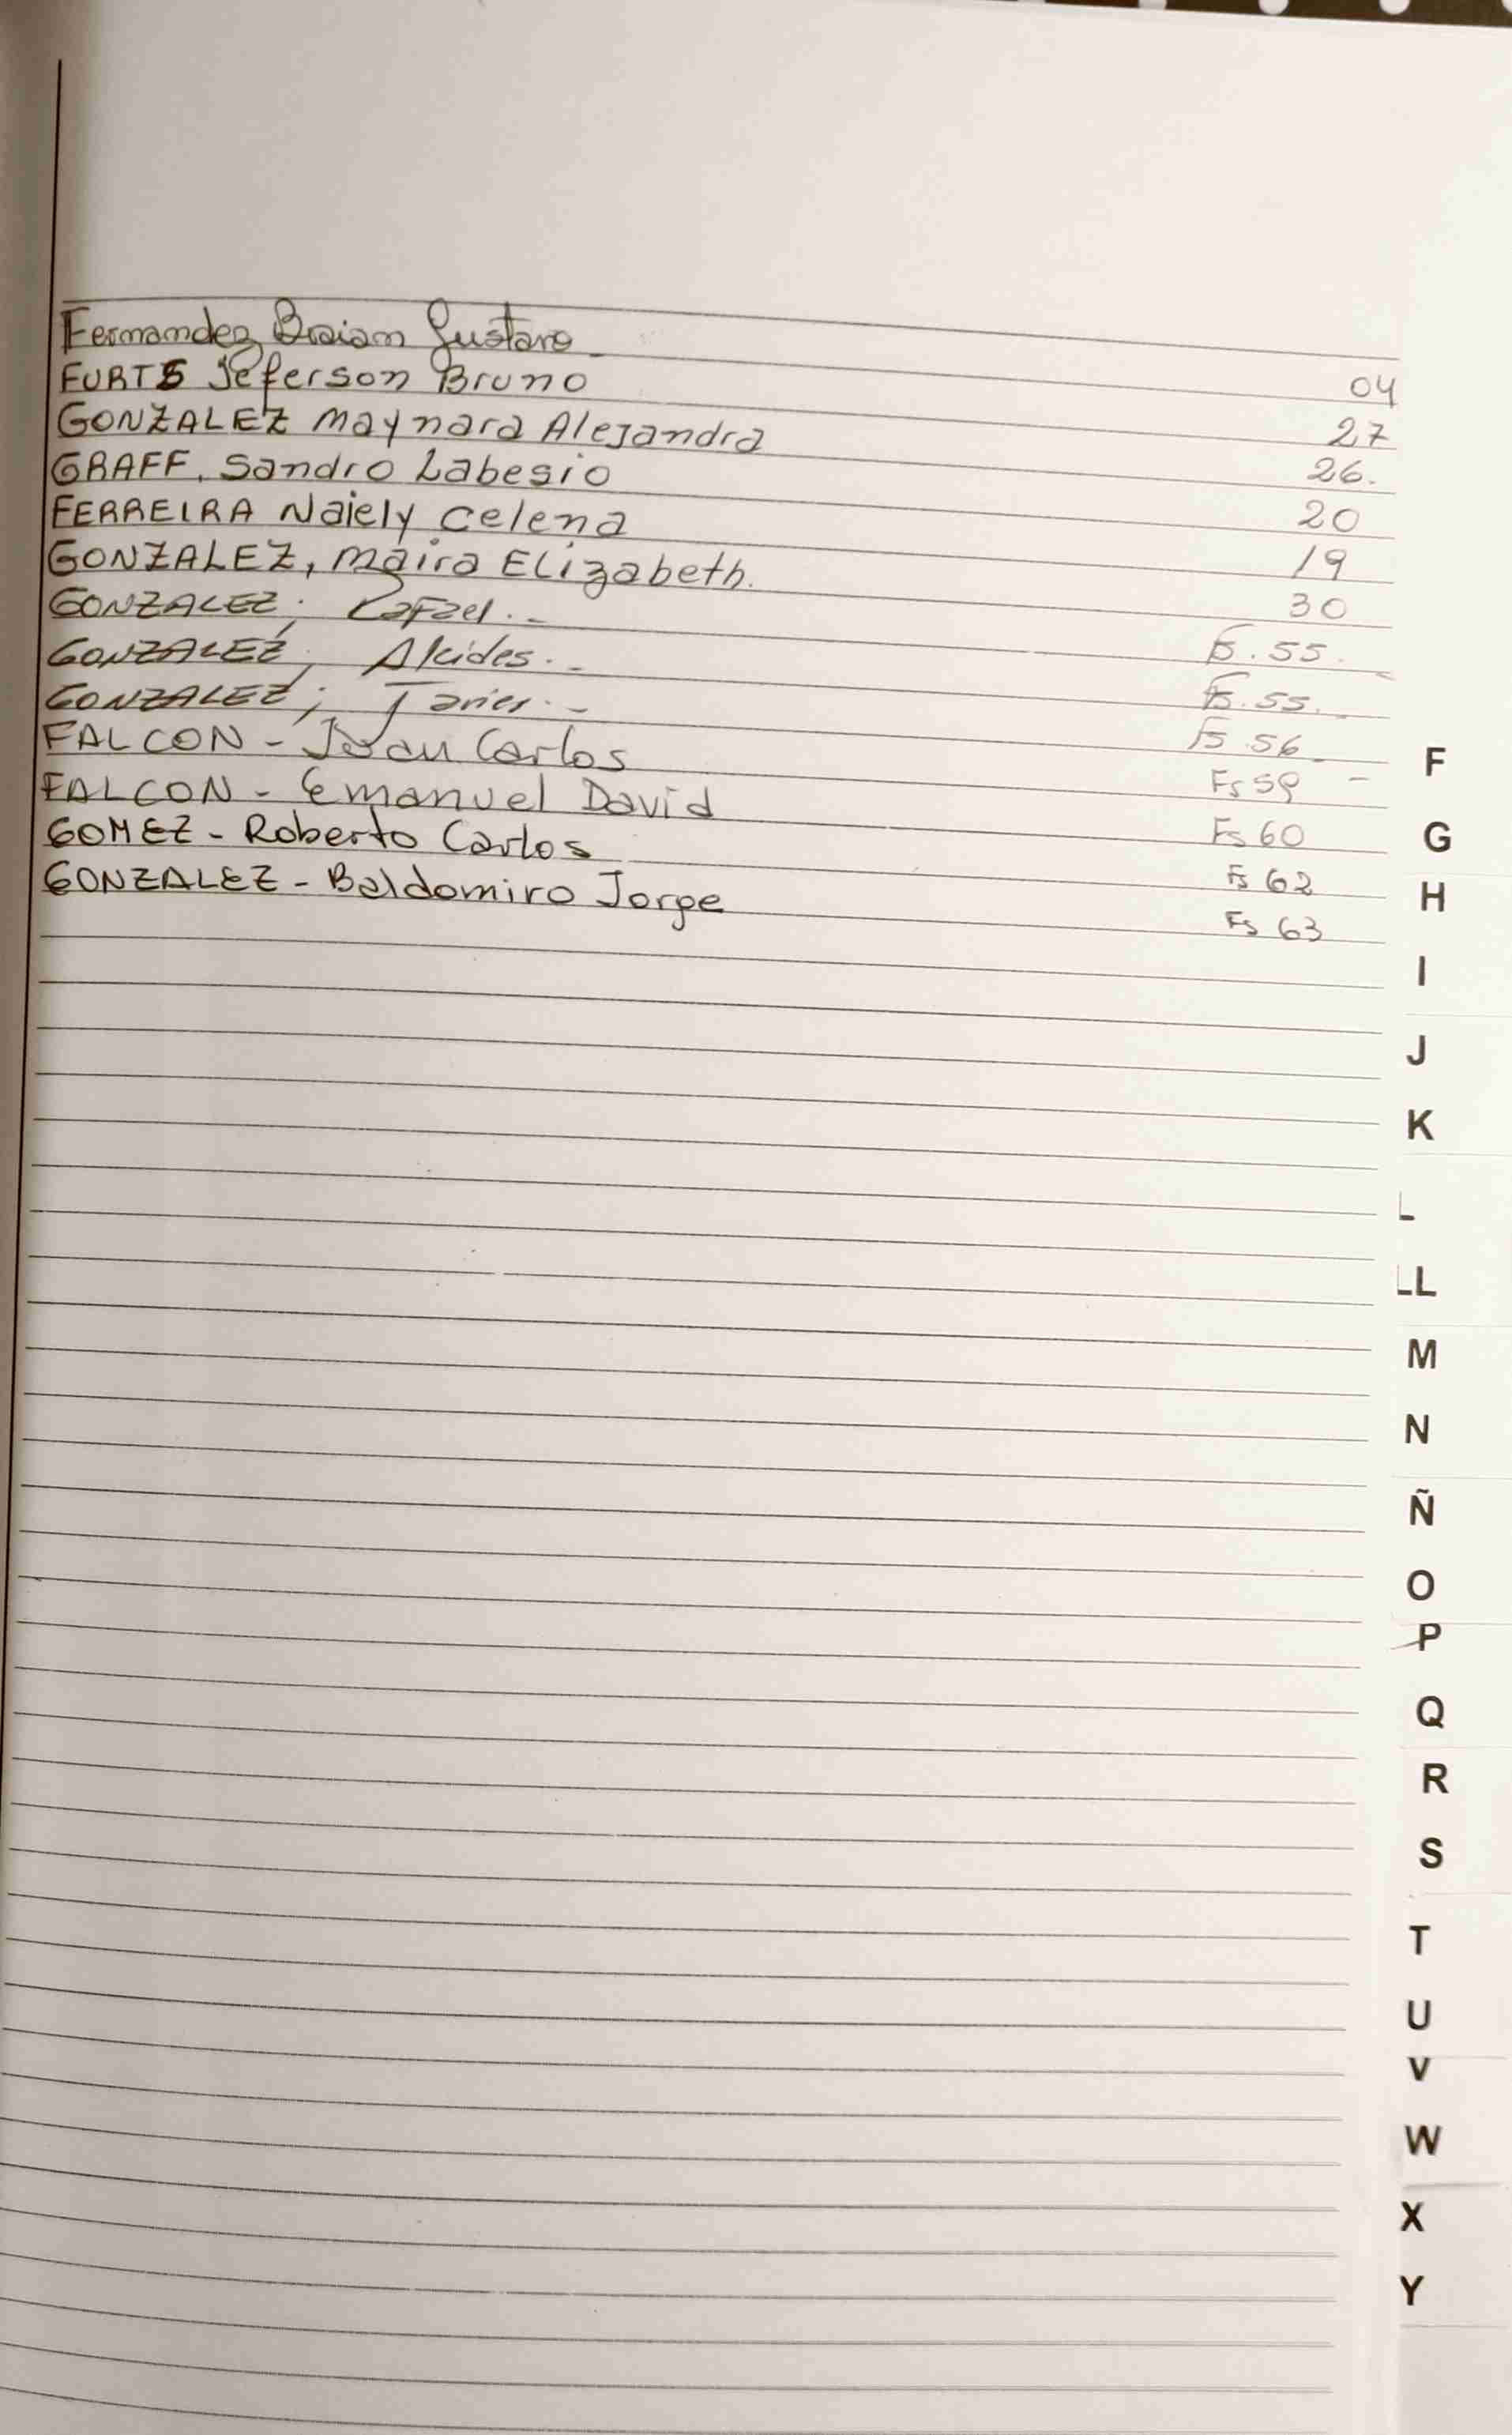 Fernandez Braian Gustavo 04
FURTS Jeferson Bruno 27
GONZALEZ Maynara Alejandra 26.
GRAFF, Sandro Labesio 20
FERREIRA Naiely Celena 19
GONZALEZ, Maira Elizabeth. 30
GONZALEZ; Rafael.- Fs. 55.
GONZALEZ; Alcides.- Fs. 55.
GONZALEZ; Javier.- Fs 56
FALCON - Juan Carlos Fs 59 -
FALCON - Emanuel David Fs 60
GOMEZ - Roberto Carlos Fs 62
GONZALEZ - Baldomiro Jorge Fs 63
F
G
H
I
J
K
L
LL
M
N
Ñ
O
P
Q
R
S
T
U
V
W
X
Y